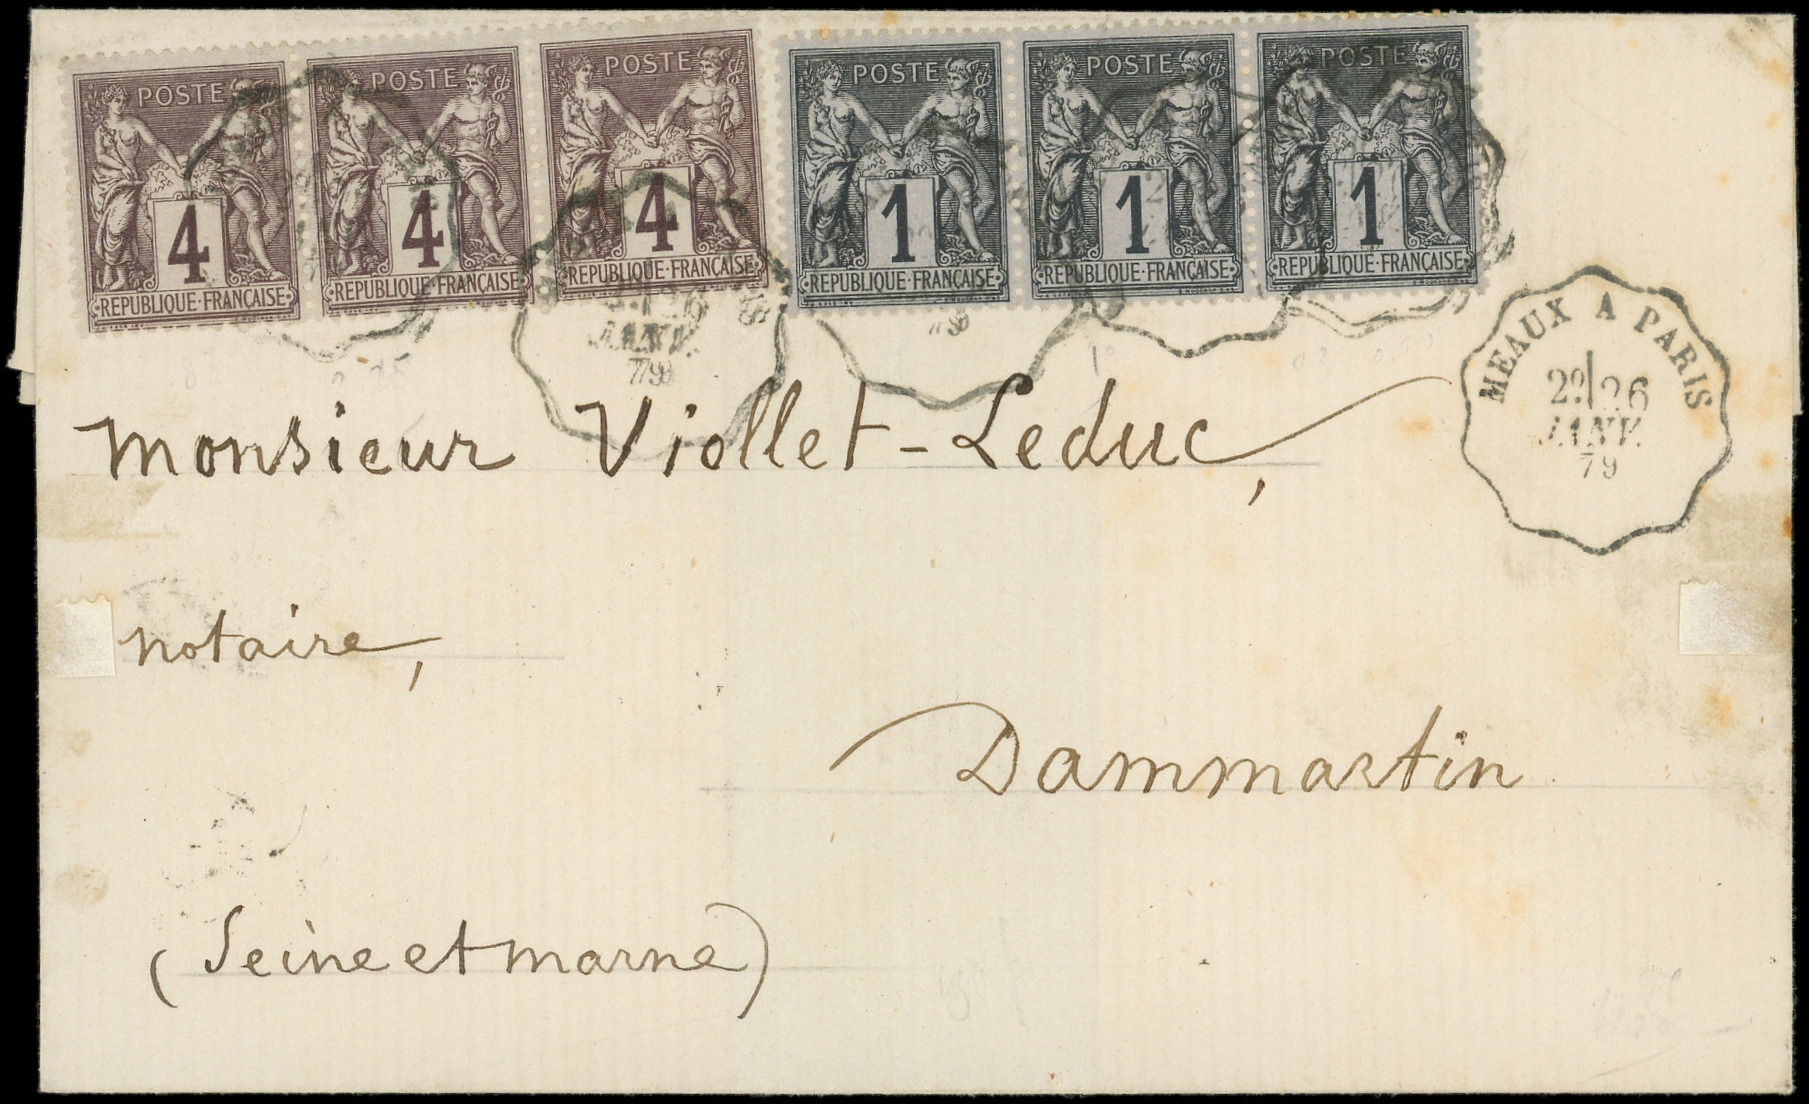 POSTE POSTE POSTE POSTE POSTE POSTE
4 4 4 1 1 1
REPUBLIQUE·FRANÇAISE REPUBLIQUE·FRANÇAISE REPUBLIQUE·FRANÇAISE REPUBLIQUE·FRANÇAISE REPUBLIQUE·FRANÇAISE REPUBLIQUE·FRANÇAISE
MEAUX A PARIS
2º 26
JANV.
79
JANV.
Monsieur Viollet-Leduc,
notaire,
Dammartin
(Seine et marne)